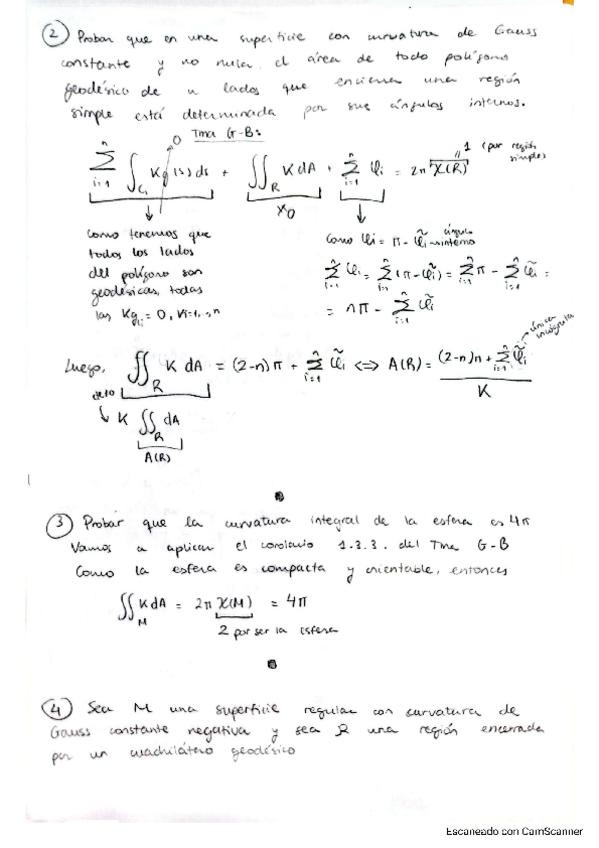 ② Probar que en una superficie con curvatura de Gauss
constante y no nula, el área de todo polígono
geodésico de n lados que encierra una región
simple está determinada por sus ángulos internos.
Tma G-B:
0
1 (por región simple)
∑_{i=1}^{n} ∫_{C_i} Kg(s)ds + ∬_R K dA + ∑_{i=1}^{n} φ_i = 2π χ(R)
Como tenemos que
todos los lados
del polígono son
geodésicas, todas
las Kg_i = 0, ∀i=1,..,n
Como φ_i = π - φ̃_i → ángulo interno
∑_{i=1}^{n} φ_i = ∑_{i=1}^{n} (π - φ̃_i) = ∑_{i=1}^{n} π - ∑_{i=1}^{n} φ̃_i =
= nπ - ∑_{i=1}^{n} φ̃_i
única incógnita
Luego, ∬_R K dA = (2-n)π + ∑_{i=1}^{n} φ̃_i <=> A(R) = ((2-n)π + ∑_{i=1}^{n} φ̃_i) / K
K ∬_R dA
A(R)
③ Probar que la curvatura integral de la esfera es 4π
Vamos a aplicar el corolario 1.3.3. del Tma G-B
Como la esfera es compacta y orientable, entonces
∬_M K dA = 2π χ(M) = 4π
2 por ser la esfera
④ Sea M una superficie regular con curvatura de
Gauss constante negativa y sea R una región encerrada
por un cuadrilátero geodésico
Escaneado con CamScanner